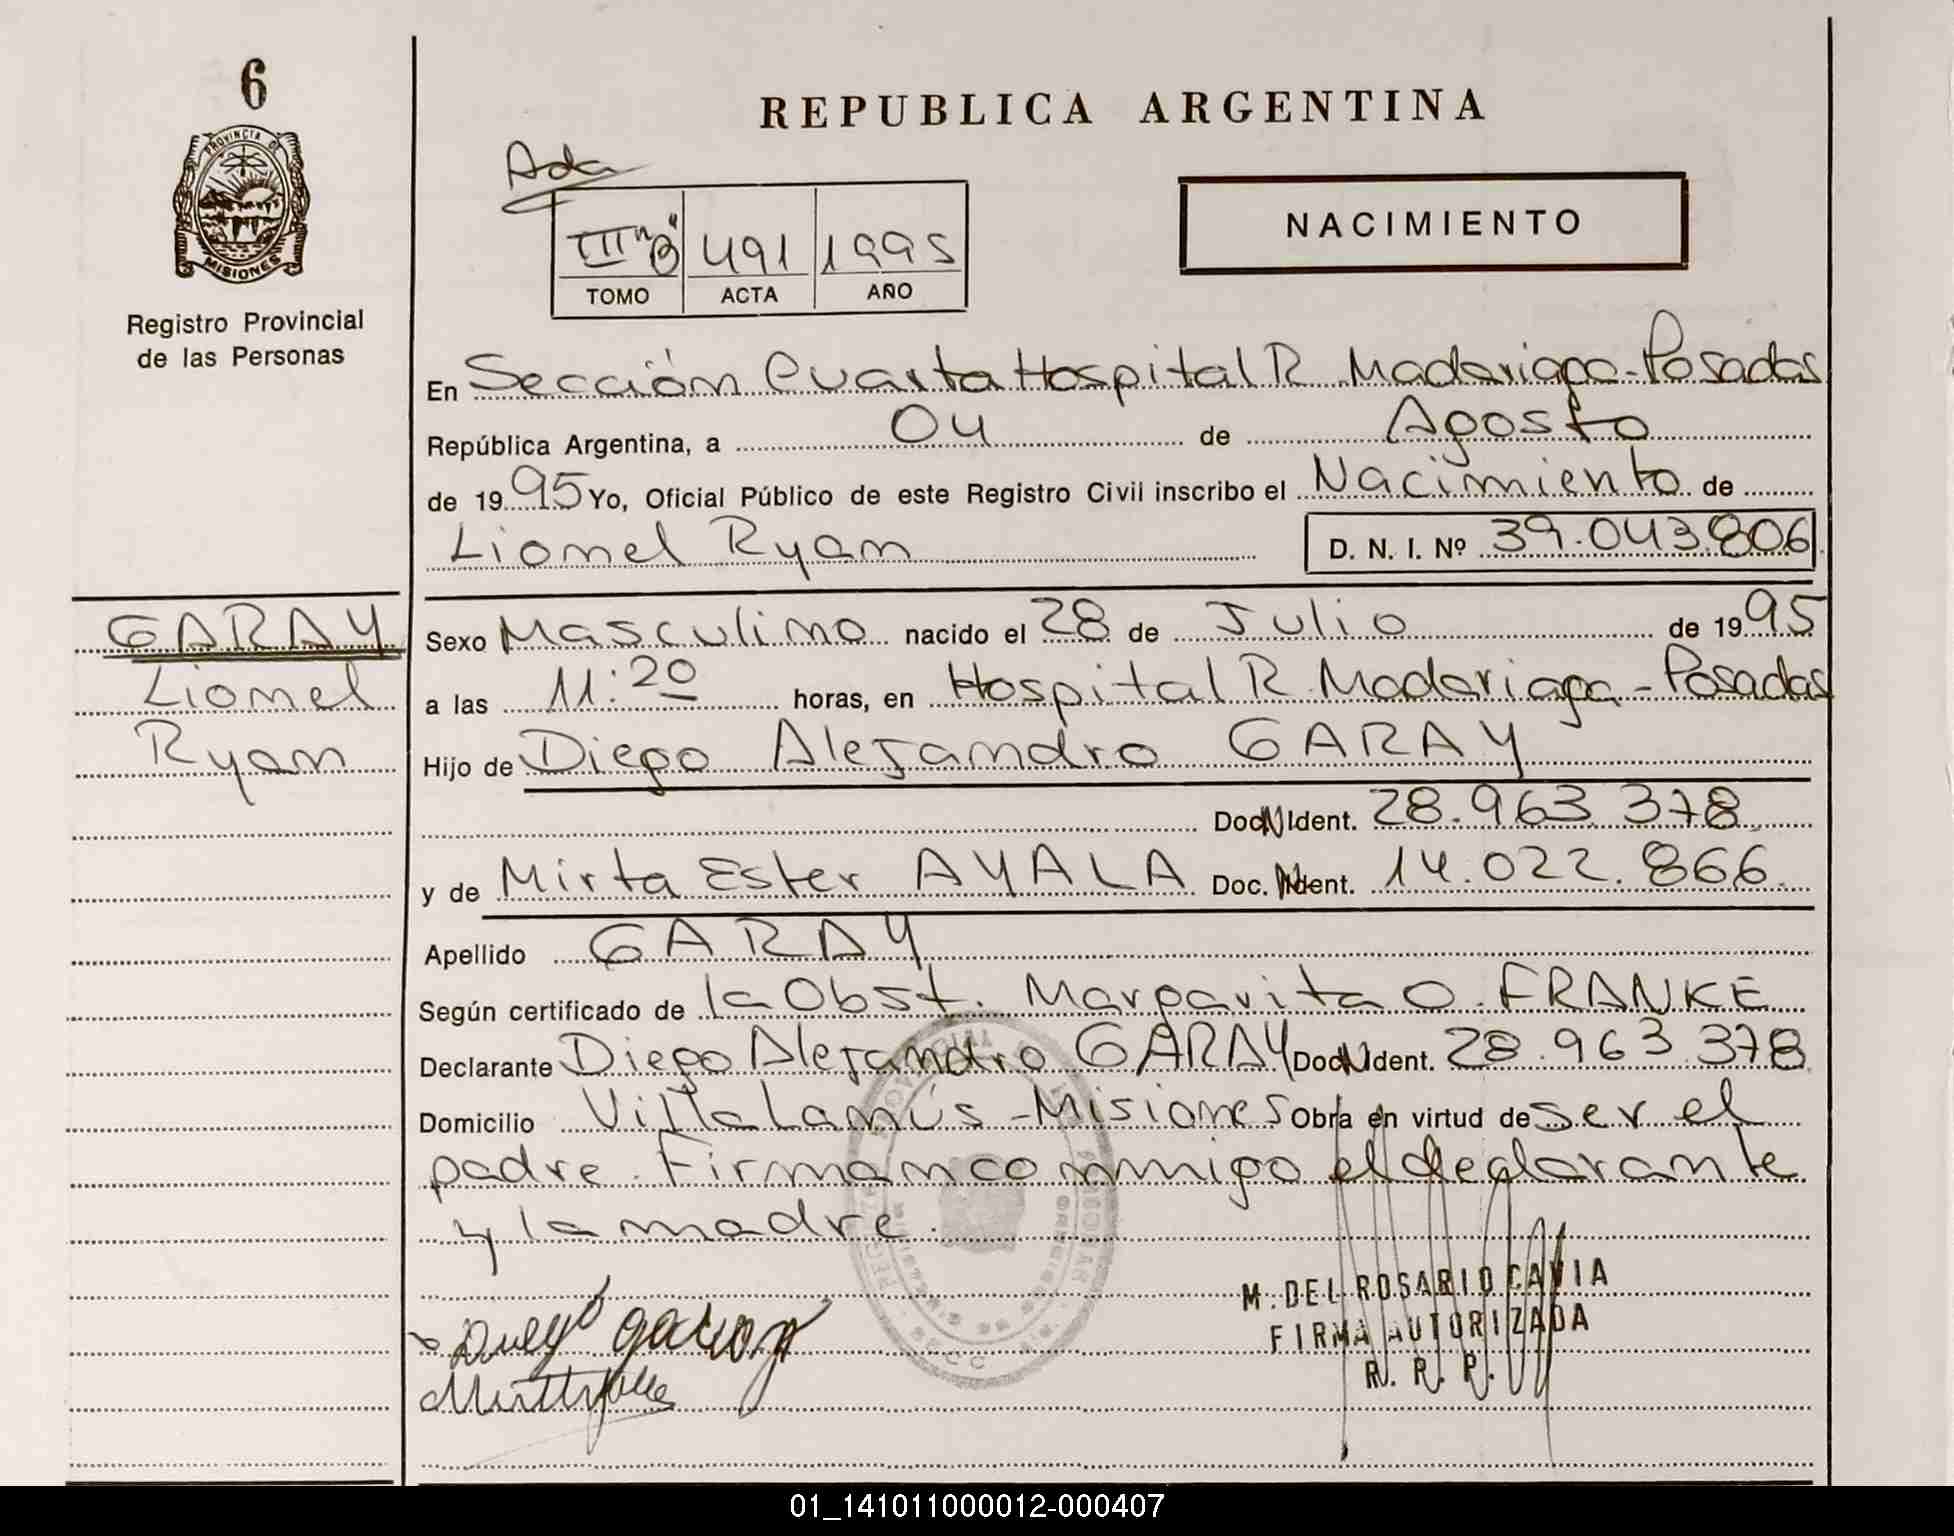 6
REPUBLICA ARGENTINA
PROVINCIA DE
MISIONES
Registro Provincial
de las Personas
Ada
III "B" 491 1995
TOMO ACTA AÑO
NACIMIENTO
En Sección Cuarta Hospital R. Madariaga - Posadas
República Argentina, a 04 de Agosto
de 1995 Yo, Oficial Público de este Registro Civil inscribo el Nacimiento de
Lionel Ryan D. N. I. Nº 39.043.806
GARAY
Lionel
Ryan
Sexo Masculino nacido el 28 de Julio de 1995
a las 11:20 horas, en Hospital R. Madariaga - Posadas
Hijo de Diego Alejandro GARAY
Doc. N Ident. 28.963.378
y de Mirta Ester AYALA Doc. N Ident. 14.022.866
Apellido GARAY
Según certificado de la Obst. Margarita O. FRANKE
Declarante Diego Alejandro GARAY Doc. N Ident. 28.963.378
Domicilio Villa Lanús - Misiones Obra en virtud de ser el
padre. Firman conmigo el declarante
y la madre.
M. DEL ROSARIO CAVIA
FIRMA AUTORIZADA
R. R. P.
01_141011000012-000407